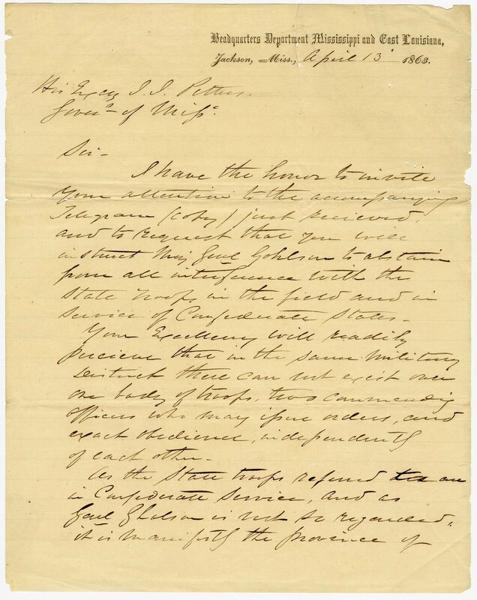 Headquarters Department Mississippi and East Louisiana,
Jackson, Miss., April 13 1863.
His Excy J. J. Pettus
Govr of Missi
Sir -
I have the honor to invite
your attention to the accompanying
Telegram (copy) just recieved,
and to request that you will
instruct Maj Genl Gohlson to abstain
from all interference with the
State troops in the field and in
service of Confederate States -
Your Excellency will readily
percieve that in the same Military
District there can not exist over
one body of troops, two commanding
officers who may issue orders, and
exact obedience, independently
of each other -
As the State troops refered to are
in Confederate service, and as
Genl Gholson is not so regarded,
it is manifestly the province of